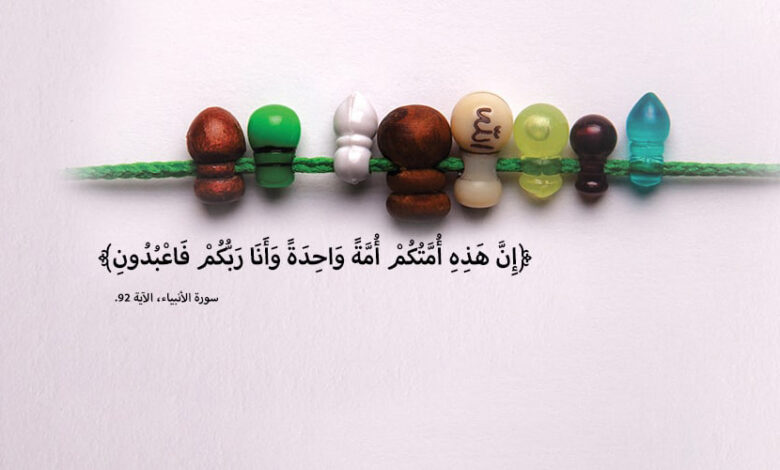 الله
﴿إِنَّ هَذِهِ أُمَّتُكُمْ أُمَّةً وَاحِدَةً وَأَنَا رَبُّكُمْ فَاعْبُدُونِ﴾
سورة الأنبياء، الآية 92.